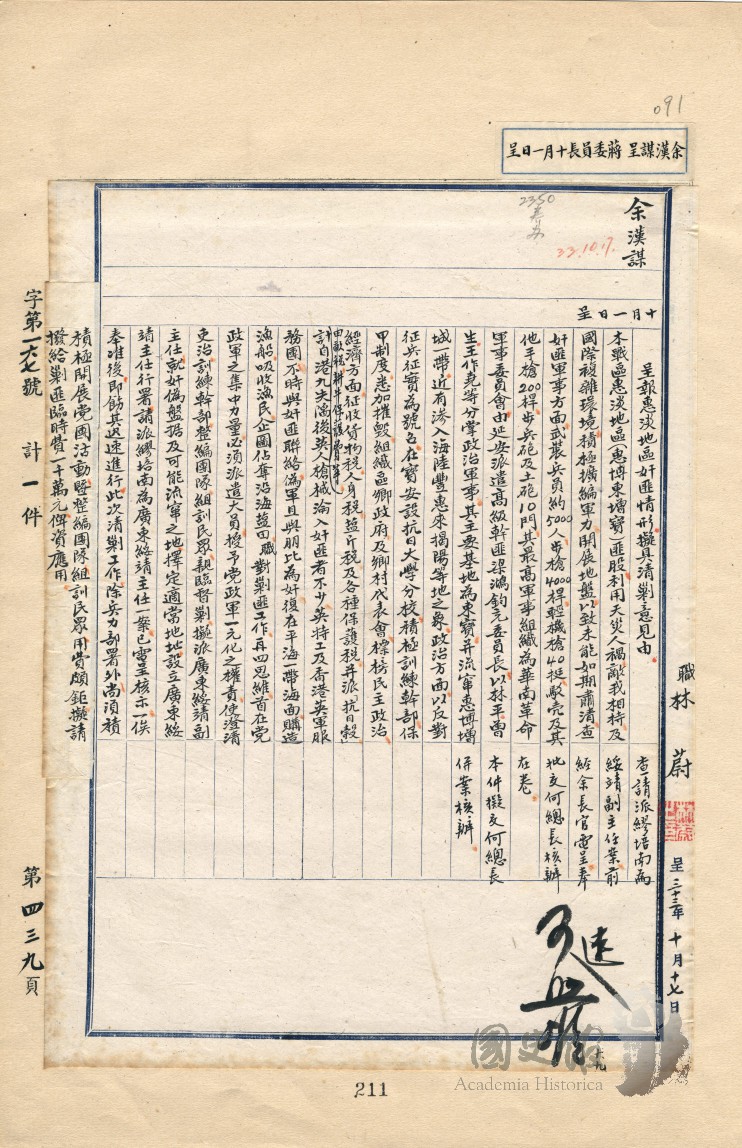 091
余漢謀呈 蔣委員長十月一日呈
2350
33.10.17.
余漢謀
十月一日呈
呈報惠淡地區奸匪情形擬具清剿意見由
本戰區惠淡地區（惠博東增寶）匪股利用天災人禍敵我相持及
國際複雜環境積極擴編軍力開展地盤以致未能如期肅清查
奸匪軍事方面武裝兵員約5000人步槍4000桿輕機槍40挺駁壳及其
他手槍200桿步兵砲及土砲10門其最高軍事組織為華南革命
軍事委員會由延安派遣高級幹匪梁鴻鈞充委員長以林平曾
生王作堯等分掌政治軍事其主要基地為東寶并流竄惠博增
城一帶近有滲入海陸豐惠來揭陽等地之象政治方面以反對
征兵征實為號召在寶安設抗日大學分校積極訓練幹部保
甲制度悉加摧毀組織區鄉政府及鄉村代表會標榜民主政治
經濟方面征收貨物稅人身稅鹽斤稅及各種保護稅并派「抗日穀」
「田畝稅」「耕牛保護費」等
計自港九失陷後英人槍械淪入奸匪者不少英特工及香港英軍服
務團不時與奸匪聯絡偽軍且與朋比為奸復在平海一帶海面購造
漁船吸收漁民企圖佔奪沿海鹽田職對剿匪工作再四思維首在党
政軍之集中力量必須派遣大員授予党政軍一元化之權責使澄清
吏治訓練幹部整編團隊組訓民眾親臨督剿擬派廣東綏靖副
主任就奸偽盤据及可能流竄之地擇定適當地址設立廣東綏
靖主任行署請派繆培南為廣東綏靖主任一案已電呈核示一俟
奉准後即飭其迅速進行此次清剿工作除兵力部署外尚須積
積極開展党團活動暨整編團隊組訓民眾用費頗鉅擬請
撥給剿匪臨時費一千萬元俾資應用
職林 蔚
呈 三十三年 十月十七日
查請派繆培南為
綏靖副主任案前
經余長官電呈奉
批交何總長核辦
在卷
本件擬交何總長
併案核辦
可
速
字第一六七號 計一件
第四三九頁
國史館
Academia Historica
211